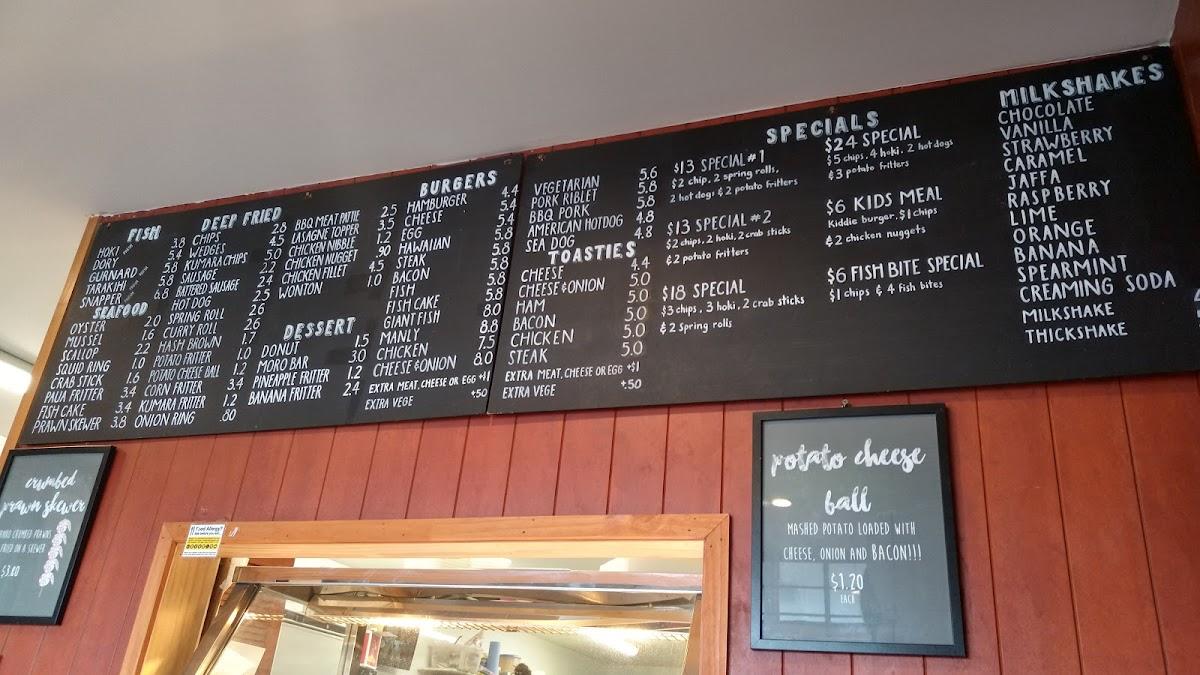 FISH
HOKI 3.8
DORY 5.4
GURNARD 5.8
TARAKIHI 5.8
SNAPPER 6.8
SEAFOOD
OYSTER 2.0
MUSSEL 1.6
SCALLOP 2.2
SQUID RING 1.0
CRAB STICK 1.6
PAUA FRITTER 3.4
FISH CAKE 3.4
PRAWN SKEWER 3.8
DEEP FRIED
CHIPS 2.8
WEDGES 4.5
KUMARA CHIPS 5.0
SAUSAGE 2.2
BATTERED SAUSAGE 2.4
HOT DOG 2.5
SPRING ROLL 2.6
CURRY ROLL 2.6
HASH BROWN 1.7
POTATO FRITTER 1.0
POTATO CHEESE BALL 1.2
CORN FRITTER
KUMARA FRITTER 1.2
ONION RING .80
BBQ MEAT PATTIE 2.5
LASAGNE TOPPER 3.5
CHICKEN NIBBLE 1.2
CHICKEN NUGGET .90
CHICKEN FILLET 4.5
WONTON 1.0
DESSERT
DONUT 1.5
MORO BAR 3.0
PINEAPPLE FRITTER 1.2
BANANA FRITTER 2.4
BURGERS
HAMBURGER 4.4
CHEESE 5.4
EGG 5.4
HAWAIIAN 5.8
STEAK 5.8
BACON 5.8
FISH 5.8
FISH CAKE 5.8
GIANT FISH 8.0
MANLY 8.8
CHICKEN 7.5
CHEESE & ONION 8.0
EXTRA MEAT, CHEESE OR EGG +$1
EXTRA VEGE +.50
VEGETARIAN 5.6
PORK RIBLET 5.8
BBQ PORK 5.8
AMERICAN HOTDOG 4.8
SEA DOG 4.8
TOASTIES
CHEESE 4.4
CHEESE & ONION 5.0
HAM 5.0
BACON 5.0
CHICKEN 5.0
STEAK 5.0
EXTRA MEAT, CHEESE OR EGG +$1
EXTRA VEGE +.50
SPECIALS
$13 SPECIAL #1
$2 chip, 2 spring rolls,
2 hot dogs & 2 potato fritters
$13 SPECIAL #2
$2 chips, 2 hoki, 2 crab sticks
& 2 potato fritters
$18 SPECIAL
$3 chips, 3 hoki, 2 crab sticks
& 2 Spring rolls
$24 SPECIAL
$5 chips, 4 hoki, 2 hotdogs
& 3 potato fritters
$6 KIDS MEAL
Kiddie burger, $1 chips
& 2 chicken nuggets
$6 FISH BITE SPECIAL
$1 chips & 4 fish bites
MILKSHAKES
CHOCOLATE
VANILLA
STRAWBERRY
CARAMEL
JAFFA
RASPBERRY
LIME
ORANGE
BANANA
SPEARMINT
CREAMING SODA
MILKSHAKE
THICKSHAKE
crumbed
prawn skewer
CRUMBED PRAWNS
FRIED ON A SKEWER
$3.80
Food Allergy?
potato cheese
ball
MASHED POTATO LOADED WITH
CHEESE, ONION AND BACON!!!
$1.20
EACH